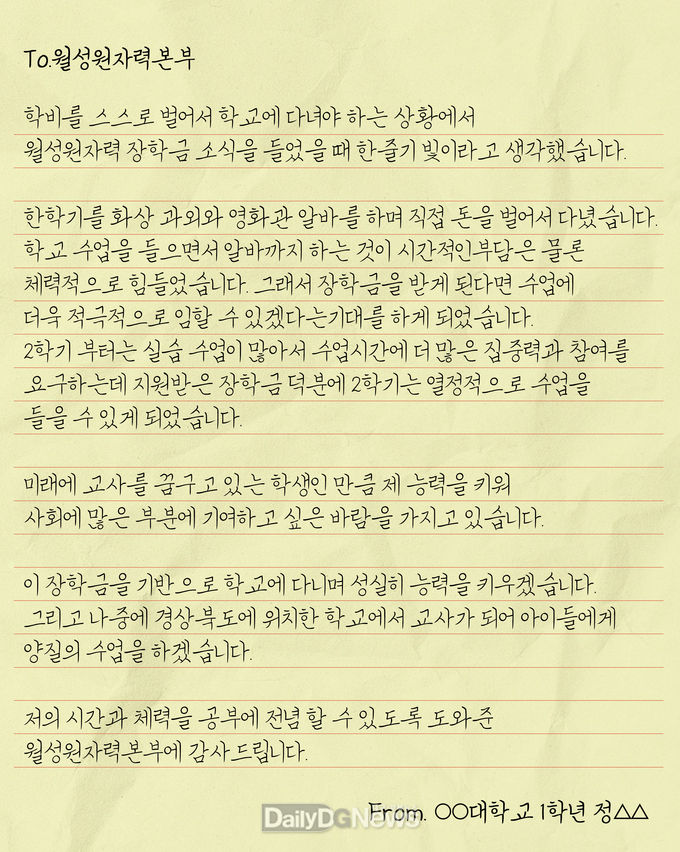 To.월성원자력본부
학비를 스스로 벌어서 학교에 다녀야 하는 상황에서
월성원자력 장학금 소식을 들었을 때 한줄기 빛이라고 생각했습니다.
한학기를 화상 과외와 영화관 알바를 하며 직접 돈을 벌어서 다녔습니다.
학교 수업을 들으면서 알바까지 하는 것이 시간적인부담은 물론
체력적으로 힘들었습니다. 그래서 장학금을 받게 된다면 수업에
더욱 적극적으로 임할 수 있겠다는기대를 하게 되었습니다.
2학기 부터는 실습 수업이 많아서 수업시간에 더 많은 집중력과 참여를
요구하는데 지원받은 장학금 덕분에 2학기는 열정적으로 수업을
들을 수 있게 되었습니다.
미래에 교사를 꿈구고 있는 학생인 만큼 제 능력을 키워
사회에 많은 부분에 기여하고 싶은 바람을 가지고 있습니다.
이 장학금을 기반으로 학교에 다니며 성실히 능력을 키우겠습니다.
그리고 나중에 경상북도에 위치한 학교에서 교사가 되어 아이들에게
양질의 수업을 하겠습니다.
저의 시간과 체력을 공부에 전념할 수 있도록 도와준
월성원자력본부에 감사드립니다.
From. ○○대학교 1학년 정△△
DailyDGNews